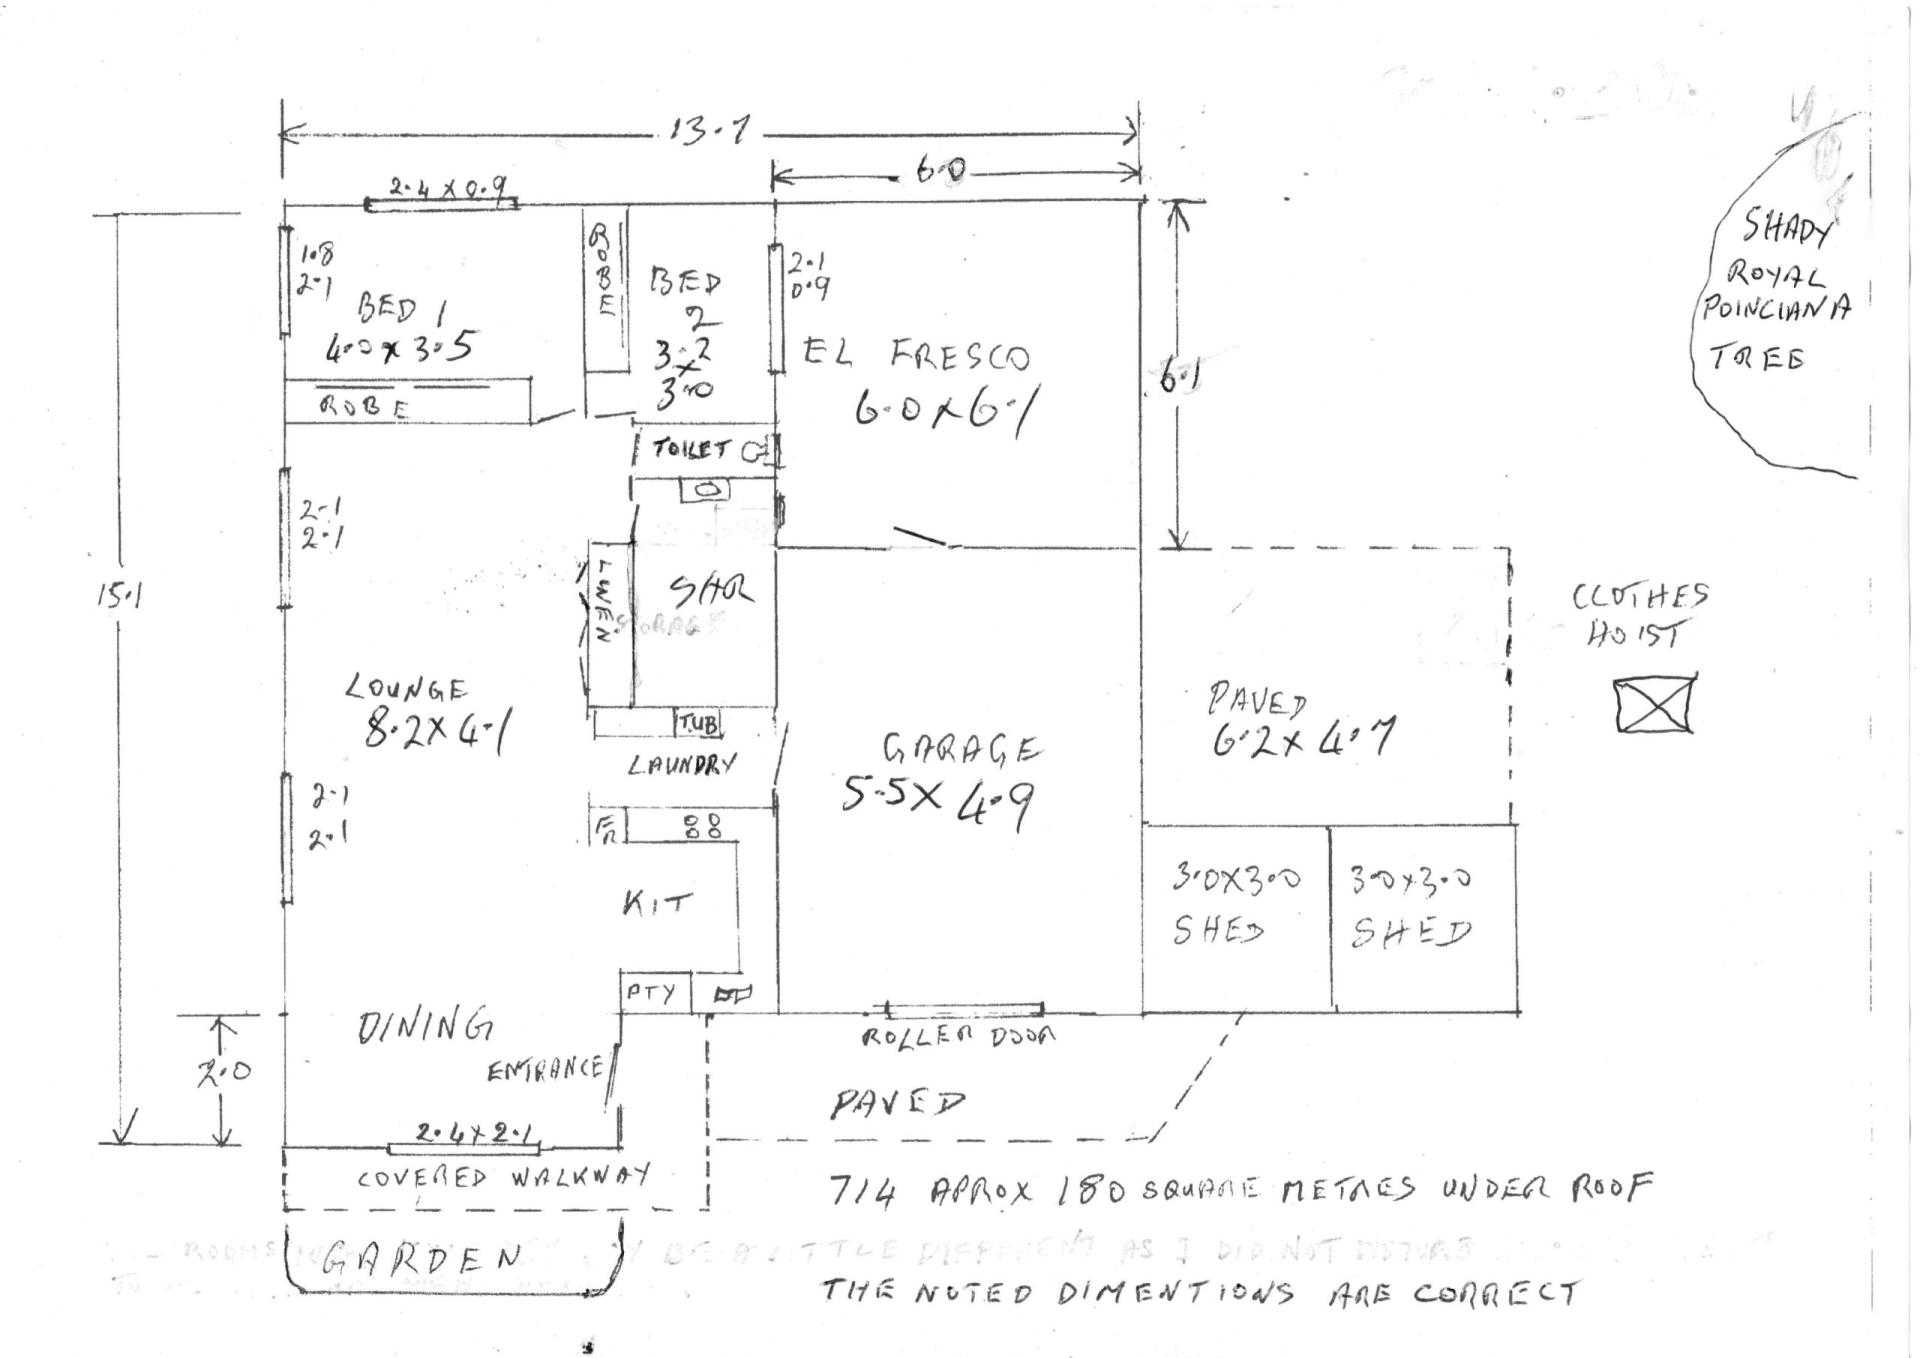 13.7
6.0
2.4 x 0.9
1.8
2.1
BED 1
4.0 x 3.5
ROBE
ROBE
BED
2
3.2
x
3.0
2.1
0.9
EL FRESCO
6.0 x 6.1
6.1
SHADY
ROYAL
POINCIANA
TREE
TOILET
2.1
2.1
15.1
LINEN
SHR
STORAGE
CLOTHES
HOIST
LOUNGE
8.2 x 4.1
TUB
LAUNDRY
GARAGE
5.5 x 4.9
PAVED
6.2 x 4.7
2.1
2.1
FR
KIT
3.0 x 3.0
SHED
3.0 x 3.0
SHED
PTY
DINING
ENTRANCE
ROLLER DOOR
2.0
PAVED
2.4 x 2.1
COVERED WALKWAY
714 APROX 180 SQUARE METRES UNDER ROOF
GARDEN
ROOMS BE A LITTLE DIFFERENT AS I DID NOT
THE NOTED DIMENTIONS ARE CORRECT